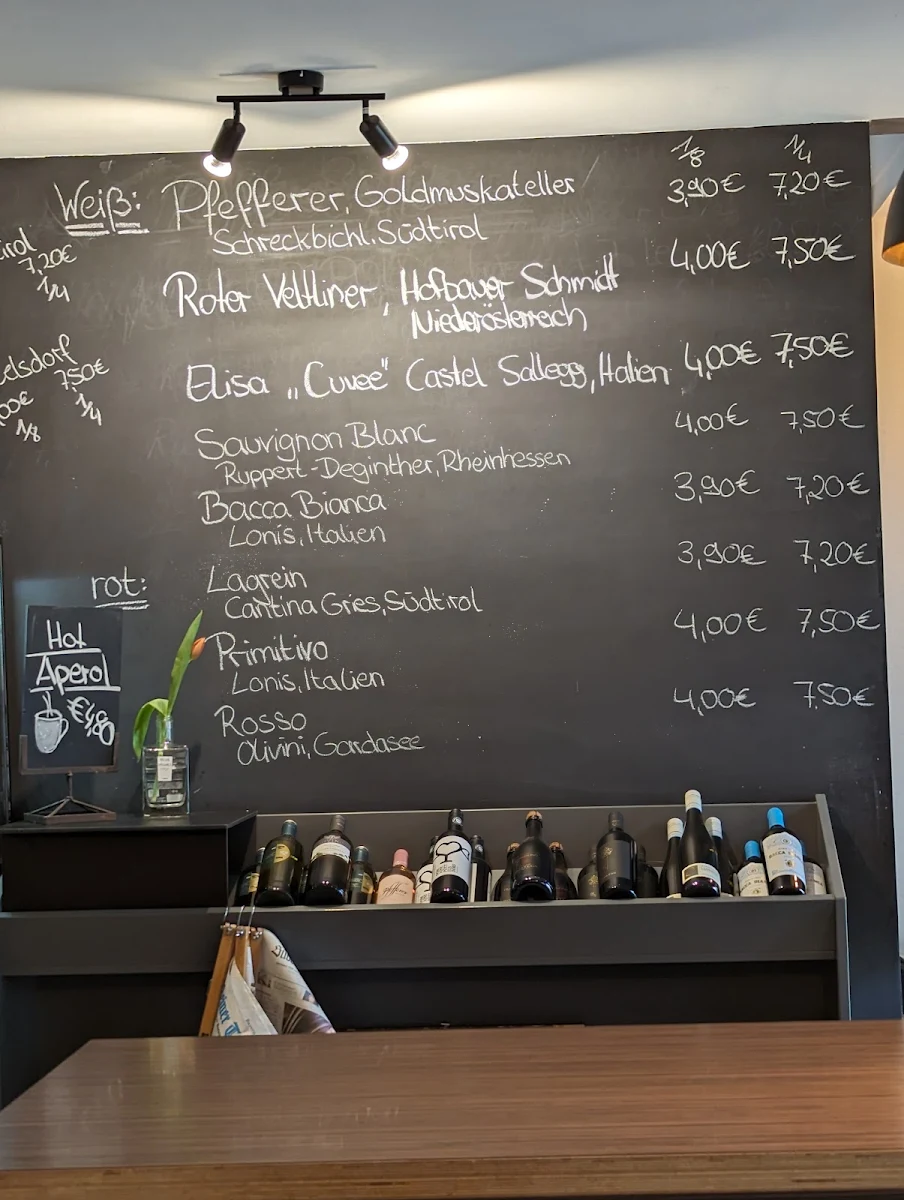 1/8 1/4
Weiß: Pfefferer, Goldmuskateller 3,90€ 7,20€
Schreckbichl, Südtirol
Roter Veltliner, Hofbauer Schmidt 4,00€ 7,50€
Niederösterreich
Elisa „Cuvee" Castel Sallegg, Italien 4,00€ 7,50€
Sauvignon Blanc 4,00€ 7,50€
Ruppert-Deginther, Rheinhessen
Bacca Bianca 3,90€ 7,20€
Lonis, Italien
rot: Lagrein 3,90€ 7,20€
Cantina Gries, Südtirol
Primitivo 4,00€ 7,50€
Lonis, Italien
Rosso 4,00€ 7,50€
Olivini, Gardasee
7,20€
1/4
elsdorf
7,50€
1/8 1/4
Hot
Aperol
€4,80